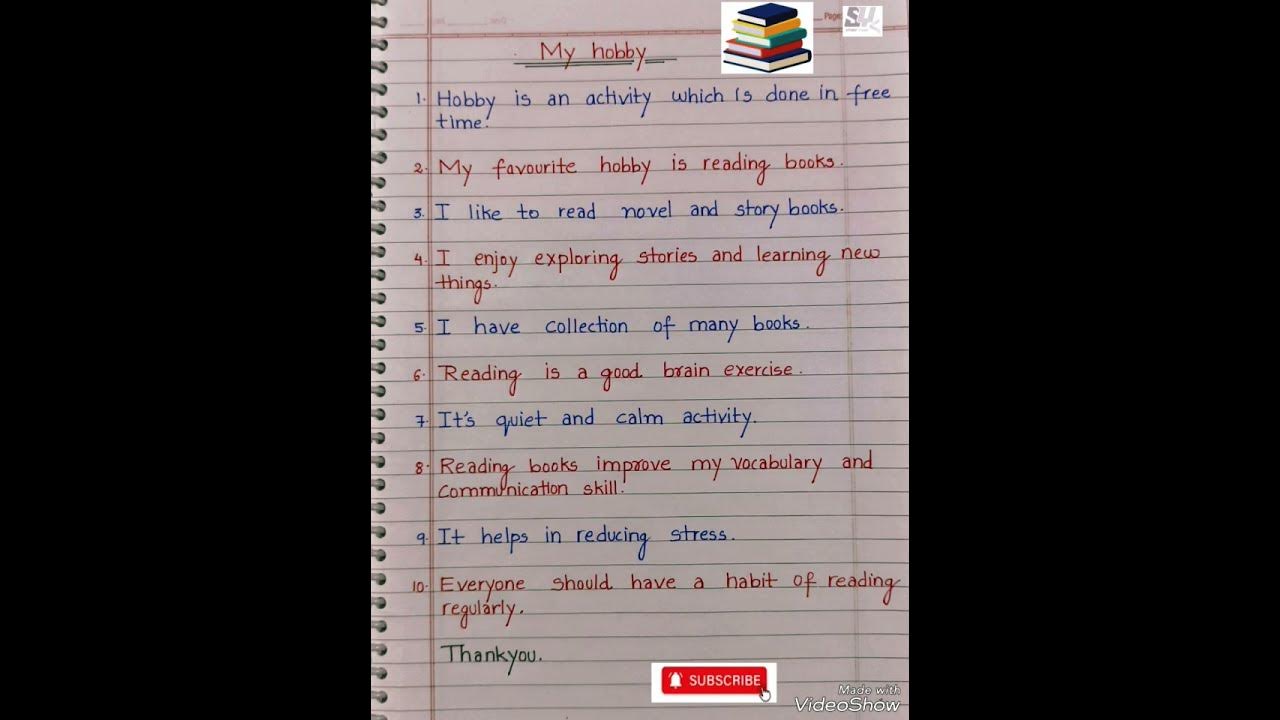 Page
SU
My hobby
1. Hobby is an activity which is done in free
time.
2. My favourite hobby is reading books.
3. I like to read novel and story books.
4. I enjoy exploring stories and learning new
things.
5. I have collection of many books.
6. Reading is a good brain exercise.
7. It's quiet and calm activity.
8. Reading books improve my vocabulary and
communication skill.
9. It helps in reducing stress.
10. Everyone should have a habit of reading
regularly.
Thankyou.
SUBSCRIBE
Made with
VideoShow